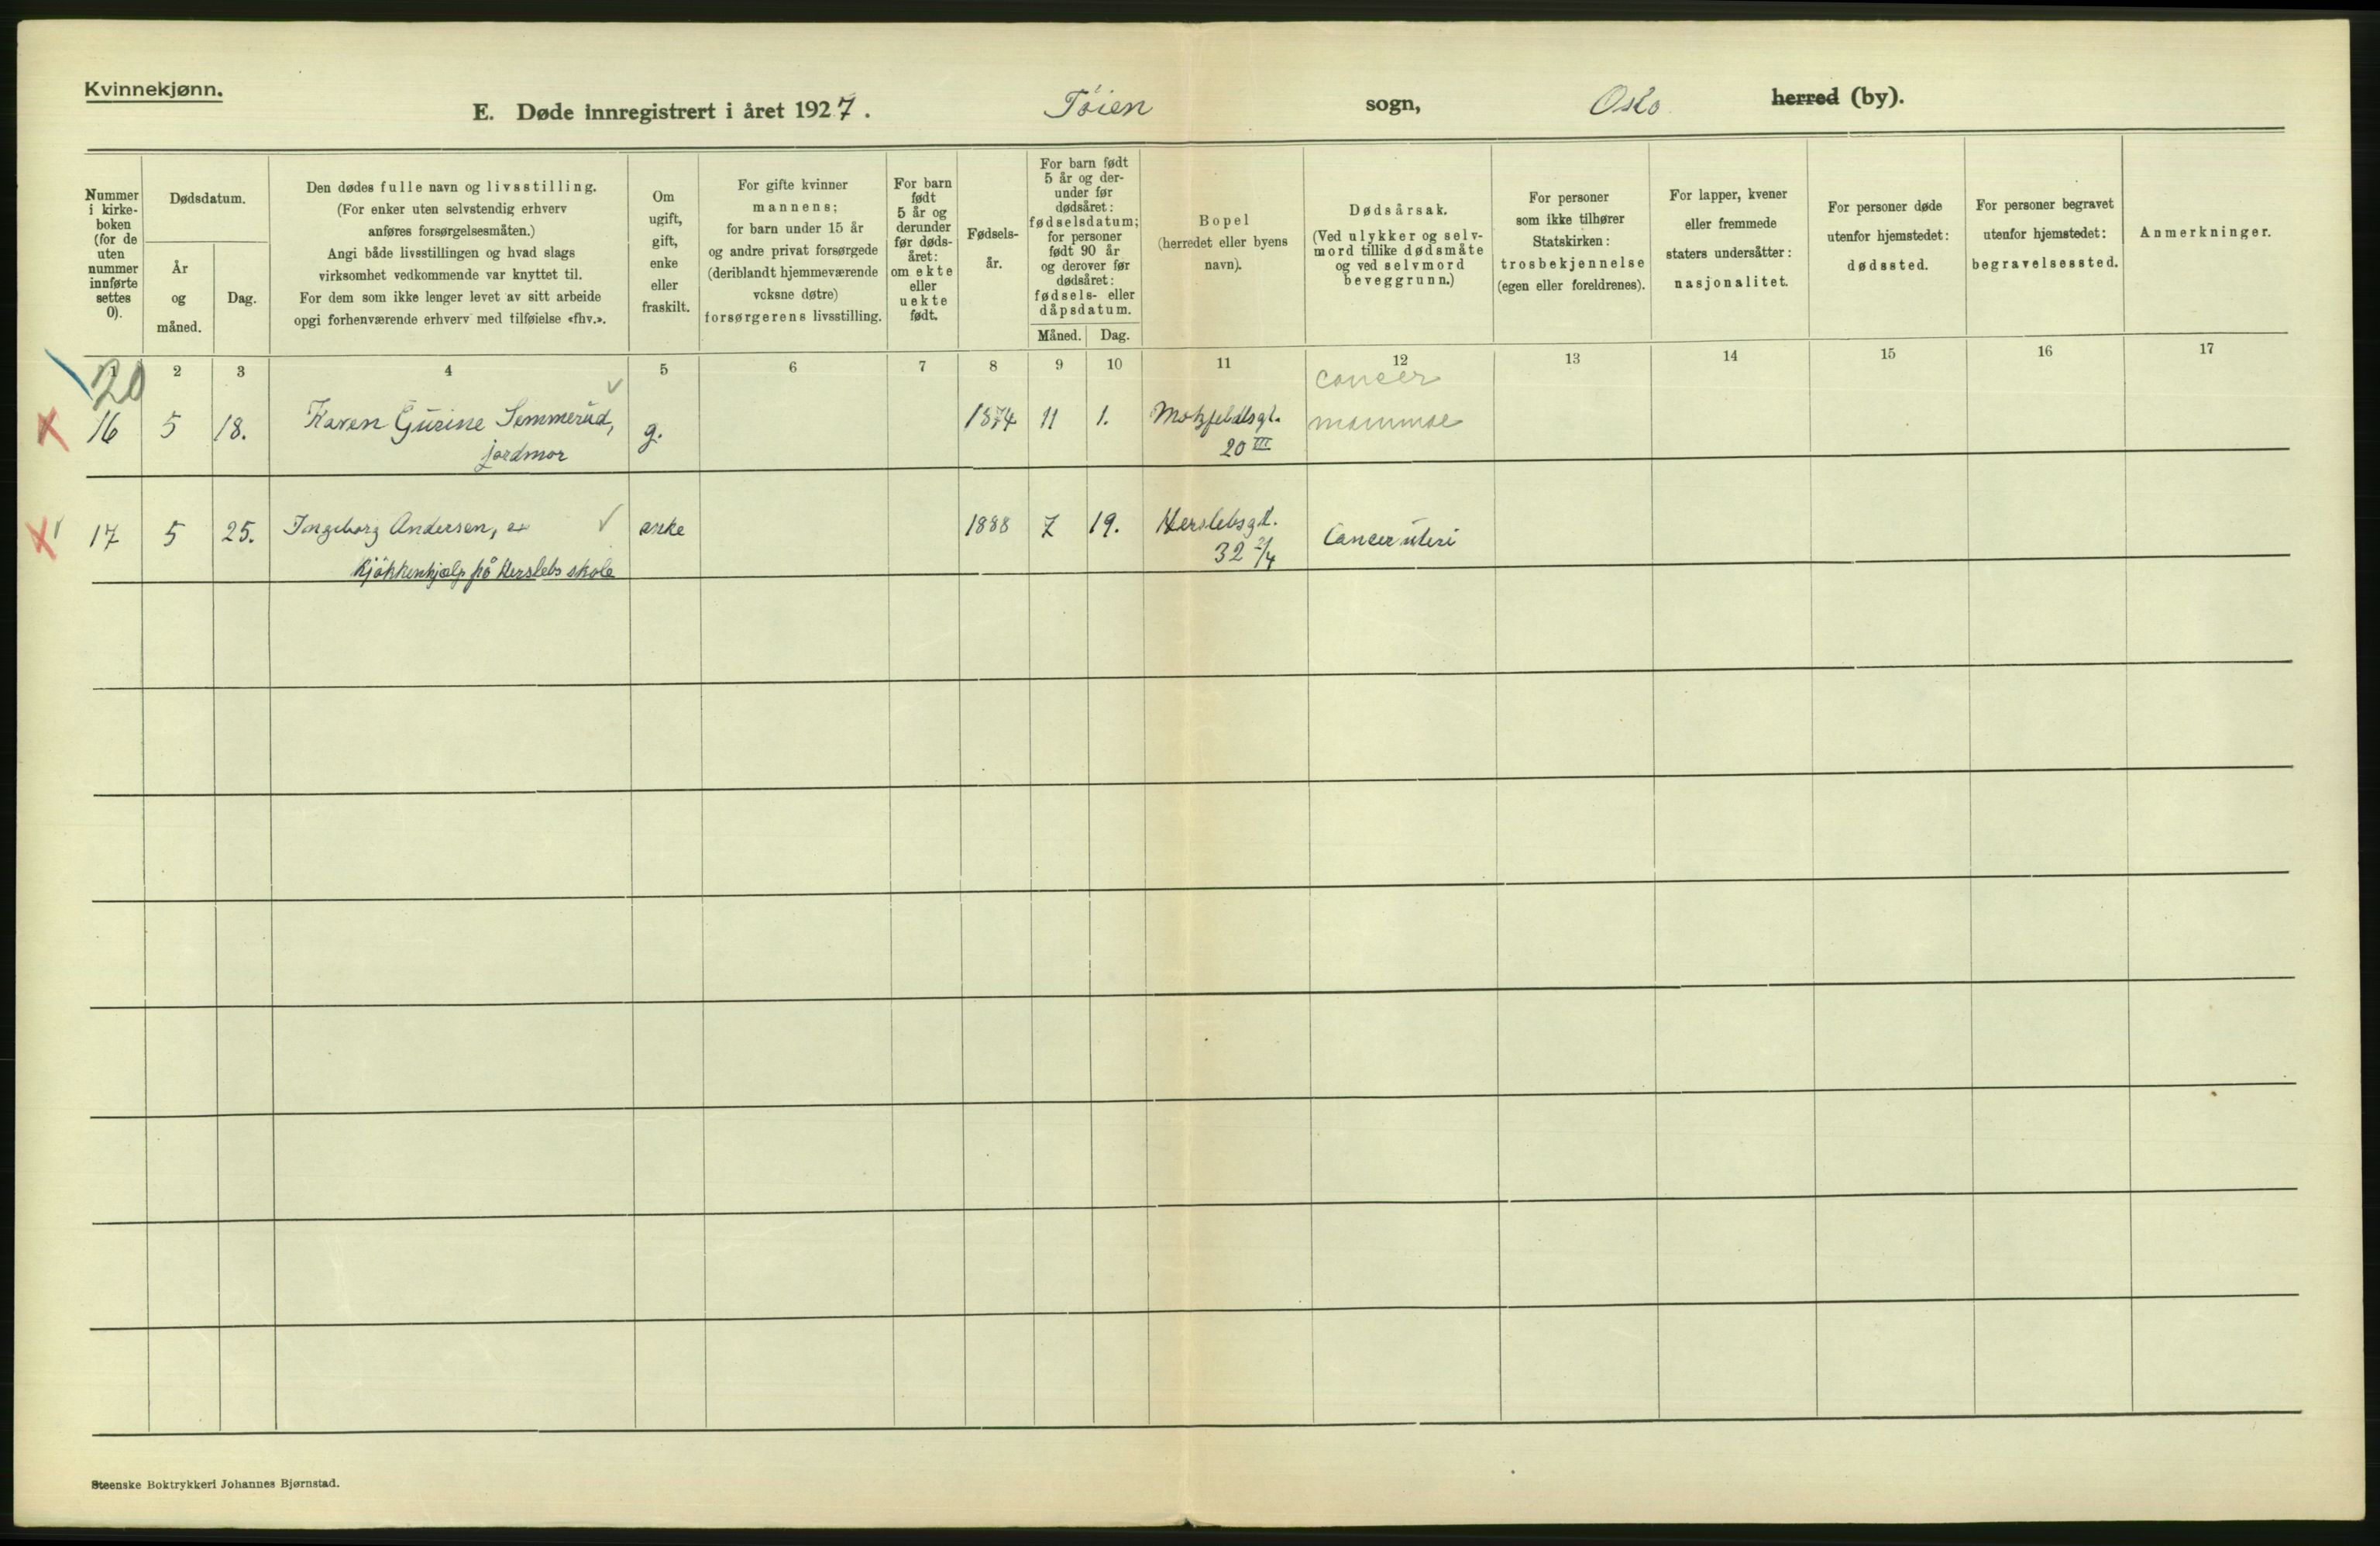 Kvinnekjønn.
E. Døde innregistrert i året 1927. Tøien sogn, Oslo herred (by).
Nummer i kirke-boken (for de uten nummer innførte settes 0).
Dødsdatum.
År og måned.
Dag.
Den dødes fulle navn og livsstilling.
(For enker uten selvstendig erhverv
anføres forsørgelsesmåten.)
Angi både livsstillingen og hvad slags
virksomhet vedkommende var knyttet til.
For dem som ikke lenger levet av sitt arbeide
opgi forhenværende erhverv med tilføielse «fhv.».
Om
ugift,
gift,
enke
eller
fraskilt.
For gifte kvinner
mannens;
for barn under 15 år
og andre privat forsørgede
(deriblandt hjemmeværende
voksne døtre)
forsørgerens livsstilling.
For barn
født
5 år og
derunder
før døds-
året:
om ekte
eller
uekte
født.
Fødsels-
år.
For barn født
5 år og der-
under før
dødsåret:
fødselsdatum;
for personer
født 90 år
og derover før
dødsåret:
fødsels- eller
dåpsdatum.
Måned. Dag.
Bopel
(herredet eller byens
navn).
Dødsårsak.
(Ved ulykker og selv-
mord tillike dødsmåte
og ved selvmord
beveggrunn.)
For personer
som ikke tilhører
Statskirken:
trosbekjennelse
(egen eller foreldrenes).
For lapper, kvener
eller fremmede
staters undersåtter:
nasjonalitet.
For personer døde
utenfor hjemstedet:
dødssted.
For personer begravet
utenfor hjemstedet:
begravelsessted.
Anmerkninger.
1 2 3 4 5 6 7 8 9 10 11 12 13 14 15 16 17
20
16 5 18. Karen Gurine Semmerud, g. 1874 11 1. Motzfeldtsgt. cancer
jordmor 20 III mammae
17 5 25. Ingeborg Andersen, enke 1888 7 19. Herslebsgt. Cancer uteri
Kjøkkenhjælp på Herslebs skole 32 2/4
Steenske Boktrykkeri Johannes Bjørnstad.